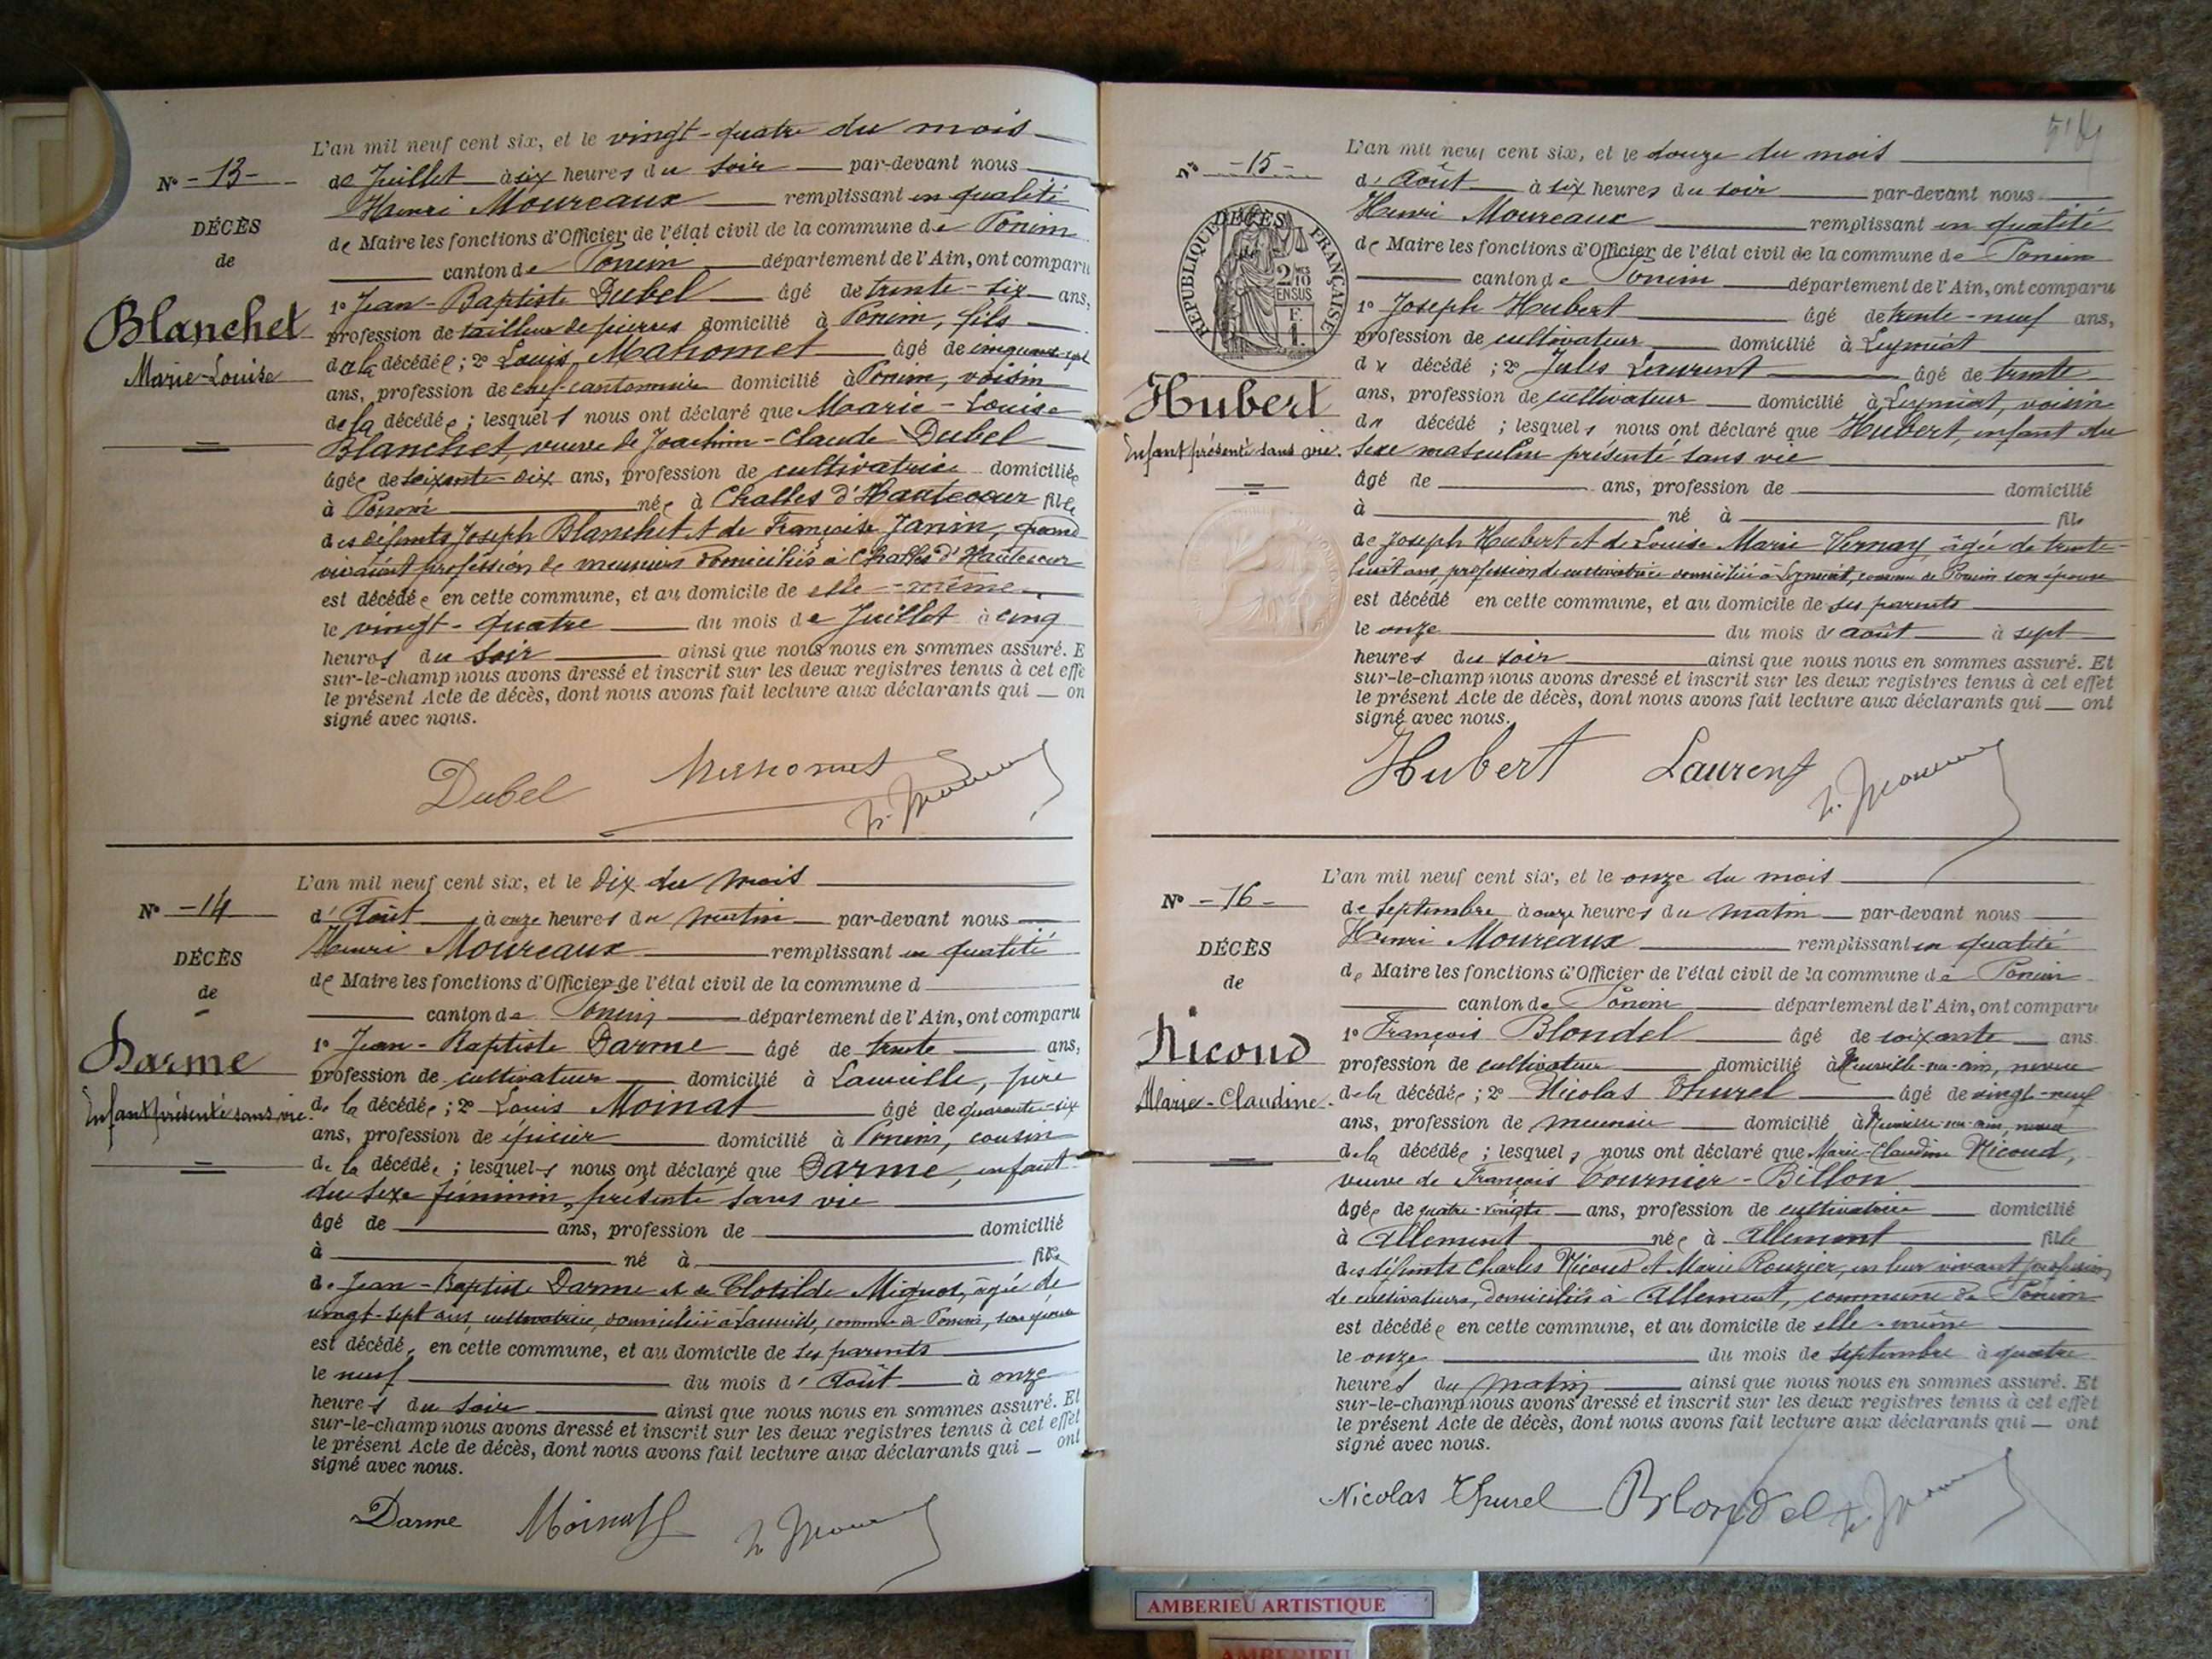 L'an mil neuf cent six, et le vingt-quatre du mois
N° -13- de Juillet à six heures du soir par-devant nous
Henri Moureaux remplissant en qualité
DÉCÈS
de Maire les fonctions d'Officier de l'état civil de la commune de Poncin
de
canton de Poncin département de l'Ain, ont comparu
Blanchet
1° Jean-Baptiste Dubel âgé de trente-six ans,
profession de tailleur de pierres domicilié à Poncin, fils
Marie-Louise
de la décédée ; 2° Louis Mahomet âgé de cinquante-sept
ans, profession de chef-cantonnier domicilié à Poncin, voisin
de la décédée ; lesquels nous ont déclaré que Marie-Louise
Blanchet, veuve de Joachim-Claude Dubel
âgée de soixante-dix ans, profession de cultivatrice domiciliée
à Poncin née à Challes d'Hautecour fille
des défunts Joseph Blanchet et de Françoise Janin, quand
vivaient profession de meuniers domiciliés à Challes d'Hautecour
est décédée en cette commune, et au domicile de elle-même
le vingt-quatre du mois de Juillet à cinq
heures du soir ainsi que nous nous en sommes assuré. E
sur-le-champ nous avons dressé et inscrit sur les deux registres tenus à cet effe
le présent Acte de décès, dont nous avons fait lecture aux déclarants qui on
signé avec nous.
Dubel Mahomet
L'an mil neuf cent six, et le dix du mois
N° -14 d'Août à onze heures du matin par-devant nous
Henri Moureaux remplissant en qualité
DÉCÈS
de Maire les fonctions d'Officier de l'état civil de la commune d
de
canton de Poncin département de l'Ain, ont comparu
Darme
1° Jean-Baptiste Darme âgé de trente ans,
profession de cultivateur domicilié à père
Enfant présenté sans vie.
de la décédée ; 2° Louis Moinat âgé de quarante-six
ans, profession de épicier domicilié à Poncin, cousin
de la décédée ; lesquels nous ont déclaré que Darme, enfant
du sexe féminin, présenté sans vie
âgé de ans, profession de domicilié
à né à fille
de Jean-Baptiste Darme et de Clotilde Mignot, âgée de
vingt-sept ans, cultivatrice, domiciliée à commune de Poncin, son épouse
est décédée en cette commune, et au domicile de ses parents
le neuf du mois d'Août à onze
heures du soir ainsi que nous nous en sommes assuré. Et
sur-le-champ nous avons dressé et inscrit sur les deux registres tenus à cet effet
le présent Acte de décès, dont nous avons fait lecture aux déclarants qui ont
signé avec nous.
Darme Moinat
L'an mil neuf cent six, et le douze du mois
N° -15- d'Août à six heures du soir par-devant nous
Henri Moureaux remplissant en qualité
DÉCÈS
de Maire les fonctions d'Officier de l'état civil de la commune de Poncin
RÉPUBLIQUE FRANÇAISE
2/10 EN SUS
F. 1.
canton de Poncin département de l'Ain, ont comparu
1° Joseph Hubert âgé de trente-neuf ans,
profession de cultivateur domicilié à Leymiat
du décédé ; 2° Jules Laurent âgé de trente
Hubert
ans, profession de cultivateur domicilié à Leymiat, voisin
du décédé ; lesquels nous ont déclaré que Hubert, enfant du
Enfant présenté sans vie.
sexe masculin présenté sans vie
âgé de ans, profession de domicilié
à né à fils
de Joseph Hubert et de Louise Marie Vernay, âgée de trente-
huit ans, profession de cultivatrice domiciliée à Leymiat, commune de Poncin son épouse
est décédé en cette commune, et au domicile de ses parents
le onze du mois d'août à sept
heures du soir ainsi que nous nous en sommes assuré. Et
sur-le-champ nous avons dressé et inscrit sur les deux registres tenus à cet effet
le présent Acte de décès, dont nous avons fait lecture aux déclarants qui ont
signé avec nous.
Hubert Laurent
L'an mil neuf cent six, et le onze du mois
N° -16- de Septembre à onze heures du matin par-devant nous
Henri Moureaux remplissant en qualité
DÉCÈS
de Maire les fonctions d'Officier de l'état civil de la commune de Poncin
de
canton de Poncin département de l'Ain, ont comparu
Nicoud
1° François Blondel âgé de soixante ans
profession de cultivateur domicilié à Neuville-sur-Ain, neveu
Marie-Claudine.
de la décédée ; 2° Nicolas Thurel âgé de vingt-neuf
ans, profession de meunier domicilié à Neuville-sur-Ain, neveu
de la décédée ; lesquels nous ont déclaré que Marie-Claudine Nicoud,
veuve de François Tournier-Billon
âgée de quatre-vingts ans, profession de cultivatrice domicilié
à Allement née à Allement fille
des défunts Charles Nicoud et Marie Rouzier, en leur vivant profession
de cultivateurs, domiciliés à Allement, commune de Poncin
est décédée en cette commune, et au domicile de elle-même
le onze du mois de Septembre à quatre
heures du matin ainsi que nous nous en sommes assuré. Et
sur-le-champ nous avons dressé et inscrit sur les deux registres tenus à cet effet
le présent Acte de décès, dont nous avons fait lecture aux déclarants qui ont
signé avec nous.
Nicolas Thurel Blondel
AMBERIEU ARTISTIQUE
AMBERIEU